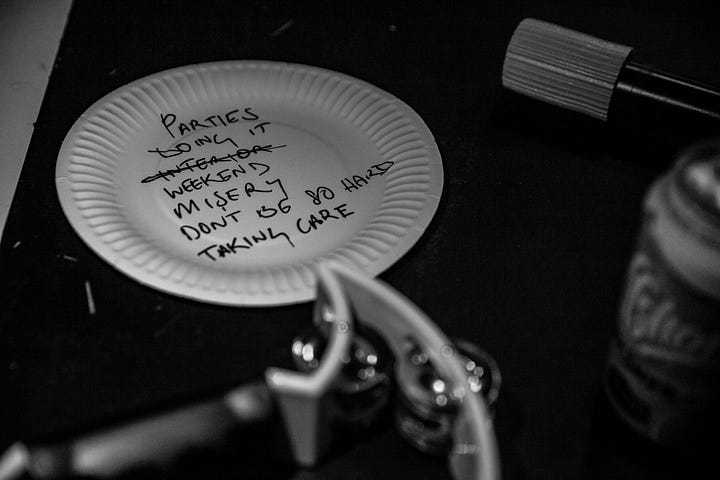 PARTIES
DOING IT
INTERIOR
WEEKEND
MISERY
DONT BE SO HARD
TAKING CARE